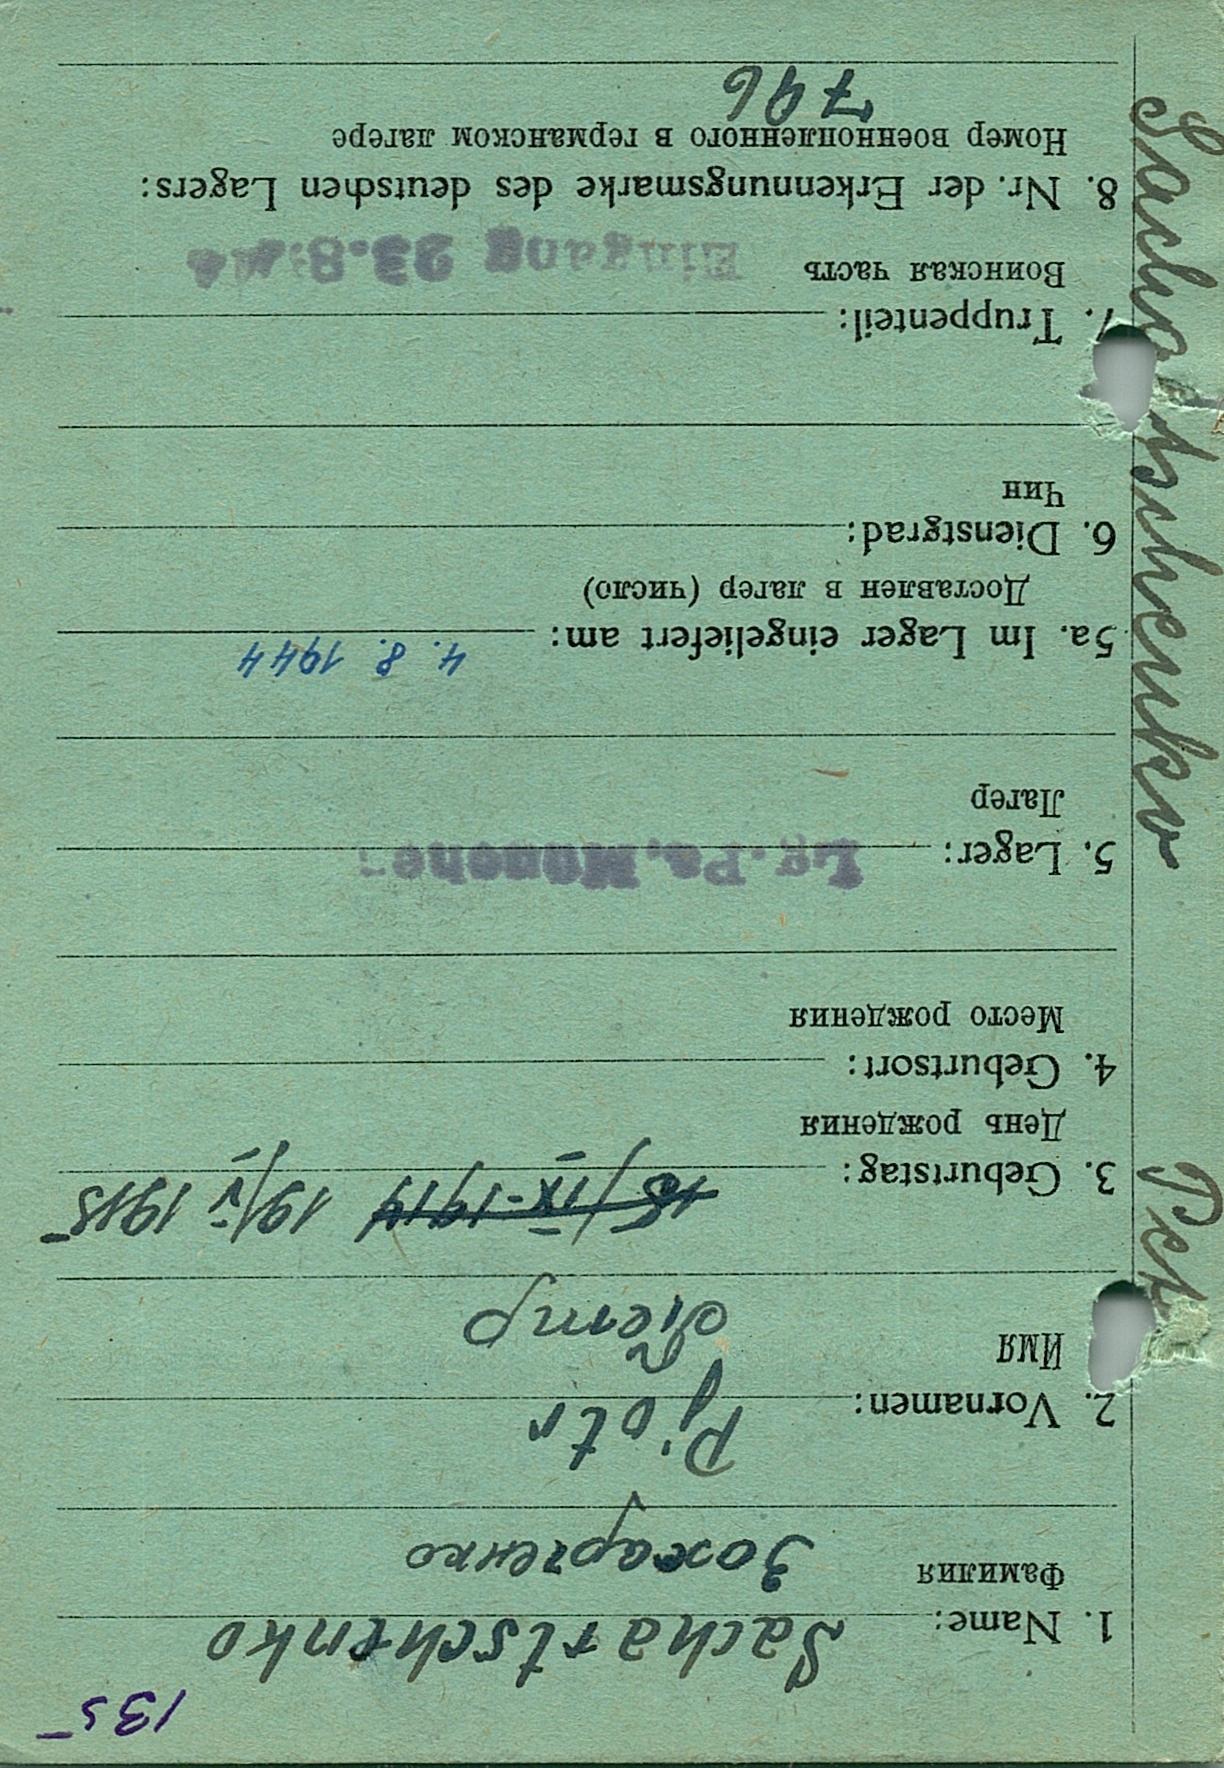 135
1. Name: Sachartschenko
Фамилия Захарченко
2. Vornamen: Pjotr
Имя Пётр
3. Geburtstag: 15/IX-1914 19/V 1915
День рождения
4. Geburtsort:
Место рождения
5. Lager: Lg.Pa.
Лагер
5a. Im Lager eingeliefert am: 4. 8. 1944
Доставлен в лагер (число)
6. Dienstgrad:
Чин
7. Truppenteil:
Воинская часть Eingang 23.8.44
8. Nr. der Erkennungsmarke des deutschen Lagers:
Номер военнопленного в германском лагере
796
Sachartschenko